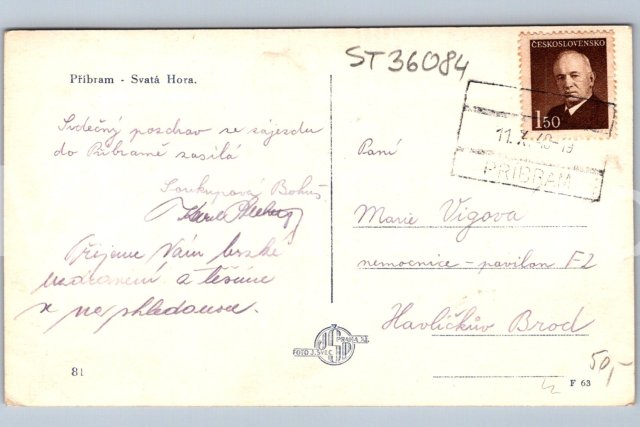 Příbram - Svatá Hora.
ST36084
ČESKOSLOVENSKO
1.50
11.X.48-19
PŘÍBRAM
Srdečný pozdrav ze zájezdu
do Příbramě zasílá
Soukupová Bohuš
Přejeme Vám brzké
uzdravení a těšíme
na shledanou.
Paní
Marie Vigova
nemocnice - pavilon F2
Havlíčkův Brod
FOTO J. ŠVEC PRAHA XI.
81
50,-
F 63